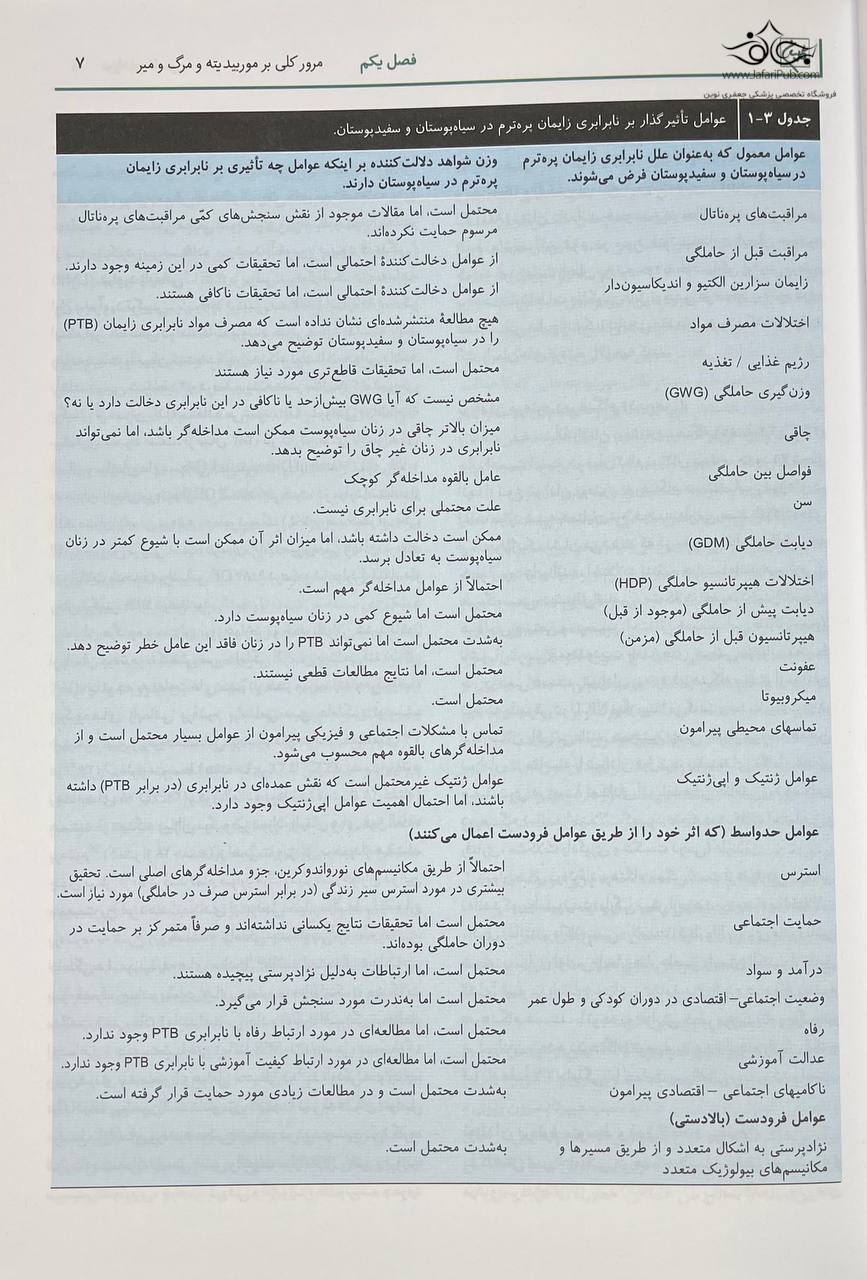 فصل یکم مرور کلی بر موربیدیته و مرگ و میر ۷
www.JafariPub.com
فروشگاه تخصصی پزشکی جعفری نوین
جدول ۳-۱ عوامل تأثیرگذار بر نابرابری زایمان پره‌ترم در سیاه‌پوستان و سفیدپوستان.
عوامل معمول که به‌عنوان علل نابرابری زایمان پره‌ترم
در سیاه‌پوستان و سفیدپوستان فرض می‌شوند.
وزن شواهد دلالت‌کننده بر اینکه عوامل چه تأثیری بر نابرابری زایمان
پره‌ترم در سیاه‌پوستان دارند.
مراقبت‌های پره‌ناتال
محتمل است، اما مقالات موجود از نقش سنجش‌های کمّی مراقبت‌های پره‌ناتال
مرسوم حمایت نکرده‌اند.
مراقبت قبل از حاملگی
از عوامل دخالت‌کنندهٔ احتمالی است، اما تحقیقات کمی در این زمینه وجود دارند.
زایمان سزارین الکتیو و اندیکاسیون‌دار
از عوامل دخالت‌کنندهٔ احتمالی است، اما تحقیقات ناکافی هستند.
اختلالات مصرف مواد
هیچ مطالعهٔ منتشرشده‌ای نشان نداده است که مصرف مواد نابرابری زایمان (PTB)
را در سیاه‌پوستان و سفیدپوستان توضیح می‌دهد.
رژیم غذایی / تغذیه
محتمل است، اما تحقیقات قاطع‌تری مورد نیاز هستند
وزن‌گیری حاملگی (GWG)
مشخص نیست که آیا GWG بیش‌ازحد یا ناکافی در این نابرابری دخالت دارد یا نه؟
چاقی
میزان بالاتر چاقی در زنان سیاه‌پوست ممکن است مداخله‌گر باشد، اما نمی‌تواند
نابرابری در زنان غیر چاق را توضیح بدهد.
فواصل بین حاملگی
عامل بالقوه مداخله‌گر کوچک
سن
علت محتملی برای نابرابری نیست.
دیابت حاملگی (GDM)
ممکن است دخالت داشته باشد، اما میزان اثر آن ممکن است با شیوع کمتر در زنان
سیاه‌پوست به تعادل برسد.
اختلالات هیپرتانسیو حاملگی (HDP)
احتمالاً از عوامل مداخله‌گر مهم است.
دیابت پیش از حاملگی (موجود از قبل)
محتمل است اما شیوع کمی در زنان سیاه‌پوست دارد.
هیپرتانسیون قبل از حاملگی (مزمن)
به‌شدت محتمل است اما نمی‌تواند PTB را در زنان فاقد این عامل خطر توضیح دهد.
عفونت
محتمل است، اما نتایج مطالعات قطعی نیستند.
میکروبیوتا
محتمل است.
تماسهای محیطی پیرامون
تماس با مشکلات اجتماعی و فیزیکی پیرامون از عوامل بسیار محتمل است و از
مداخله‌گرهای بالقوه مهم محسوب می‌شود.
عوامل ژنتیک و اپی‌ژنتیک
عوامل ژنتیک غیرمحتمل است که نقش عمده‌ای در نابرابری (در برابر PTB) داشته
باشند، اما احتمال اهمیت عوامل اپی‌ژنتیک وجود دارد.
عوامل حدواسط (که اثر خود را از طریق عوامل فرودست اعمال می‌کنند)
استرس
احتمالاً از طریق مکانیسم‌های نورواندوکرین، جزو مداخله‌گرهای اصلی است. تحقیق
بیشتری در مورد استرس سیر زندگی (در برابر استرس صرف در حاملگی) مورد نیاز است.
حمایت اجتماعی
محتمل است اما تحقیقات نتایج یکسانی نداشته‌اند و صرفاً متمرکز بر حمایت در
دوران حاملگی بوده‌اند.
درآمد و سواد
محتمل است، اما ارتباطات به‌دلیل نژادپرستی پیچیده هستند.
وضعیت اجتماعی– اقتصادی در دوران کودکی و طول عمر
محتمل است اما به‌ندرت مورد سنجش قرار می‌گیرد.
رفاه
محتمل است، اما مطالعه‌ای در مورد ارتباط رفاه با نابرابری PTB وجود ندارد.
عدالت آموزشی
محتمل است، اما مطالعه‌ای در مورد ارتباط کیفیت آموزشی با نابرابری PTB وجود ندارد.
ناکامیهای اجتماعی – اقتصادی پیرامون
به‌شدت محتمل است و در مطالعات زیادی مورد حمایت قرار گرفته است.
عوامل فرودست (بالادستی)
نژادپرستی به اشکال متعدد و از طریق مسیرها و
مکانیسم‌های بیولوژیک متعدد
به‌شدت محتمل است.